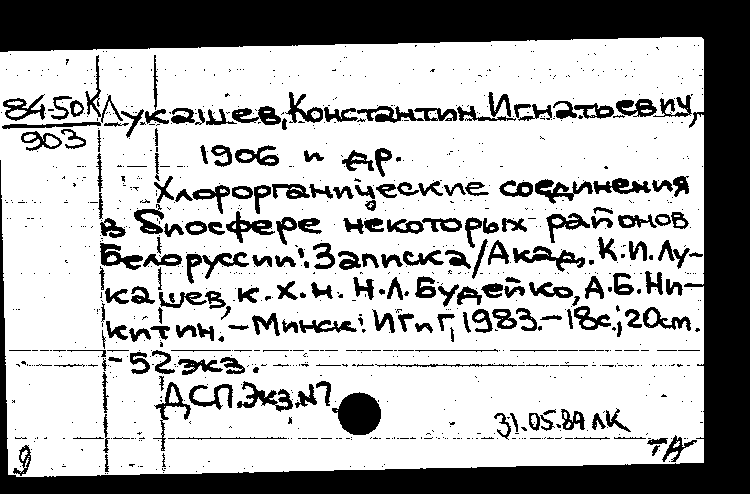 84-50К
903
Лукашев, Константин Игнатьевич,
1906 и др.
Хлорорганические соединения
в биосфере некоторых районов
Белоруссии: Записка/Акад. К.И.Лу-
кашев, к.х.н. Н.Л.Будейко, А.Б.Ни-
китин.-Минск: ИГиГ, 1983.-18с.; 20см.
-52экз.
ДСП.Экз.N7.
31.05.84 ЛК
9